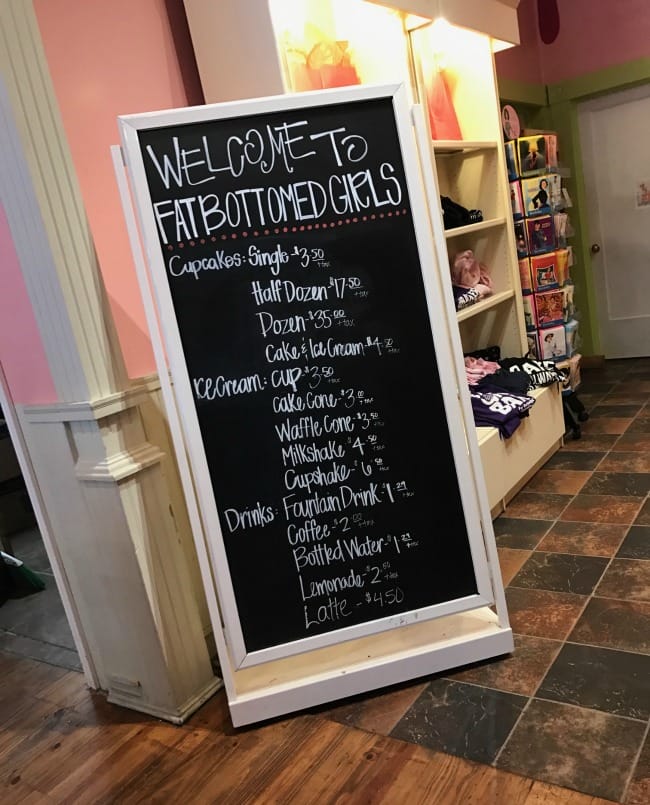 WELCOME TO
FATBOTTOMED GIRLS
Cupcakes: Single - $3.50 +tax
Half Dozen - $17.50 +tax
Dozen - $35.00 +tax
Cake & Ice Cream - $4.50 +tax
Ice Cream: Cup - $3.50 +tax
Cake Cone - $3.00 +tax
Waffle Cone - $3.50 +tax
Milkshake - $4.50 +tax
Cupshake - $6.50 +tax
Drinks: Fountain Drink - $1.29 +tax
Coffee - $2.00 +tax
Bottled Water - $1.29 +tax
Lemonade - $2.50 +tax
Latte - $4.50